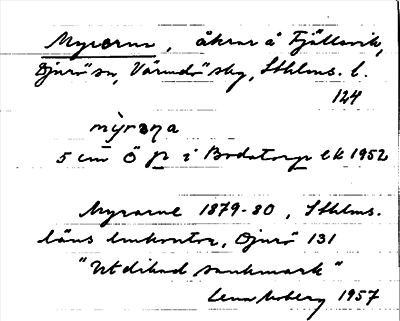 Myrorna, åkrar å Fjällsvik,
Djurö sn, Värmdö skg, Sthlms. l.
124
mỳrəɳa
5 cm Ö p i Bodatorp ek 1952
Myrarne 1879-80, Sthlms.
läns lmkontor, Djurö 131
"Utdikad sankmark"
Lena Moberg 1957